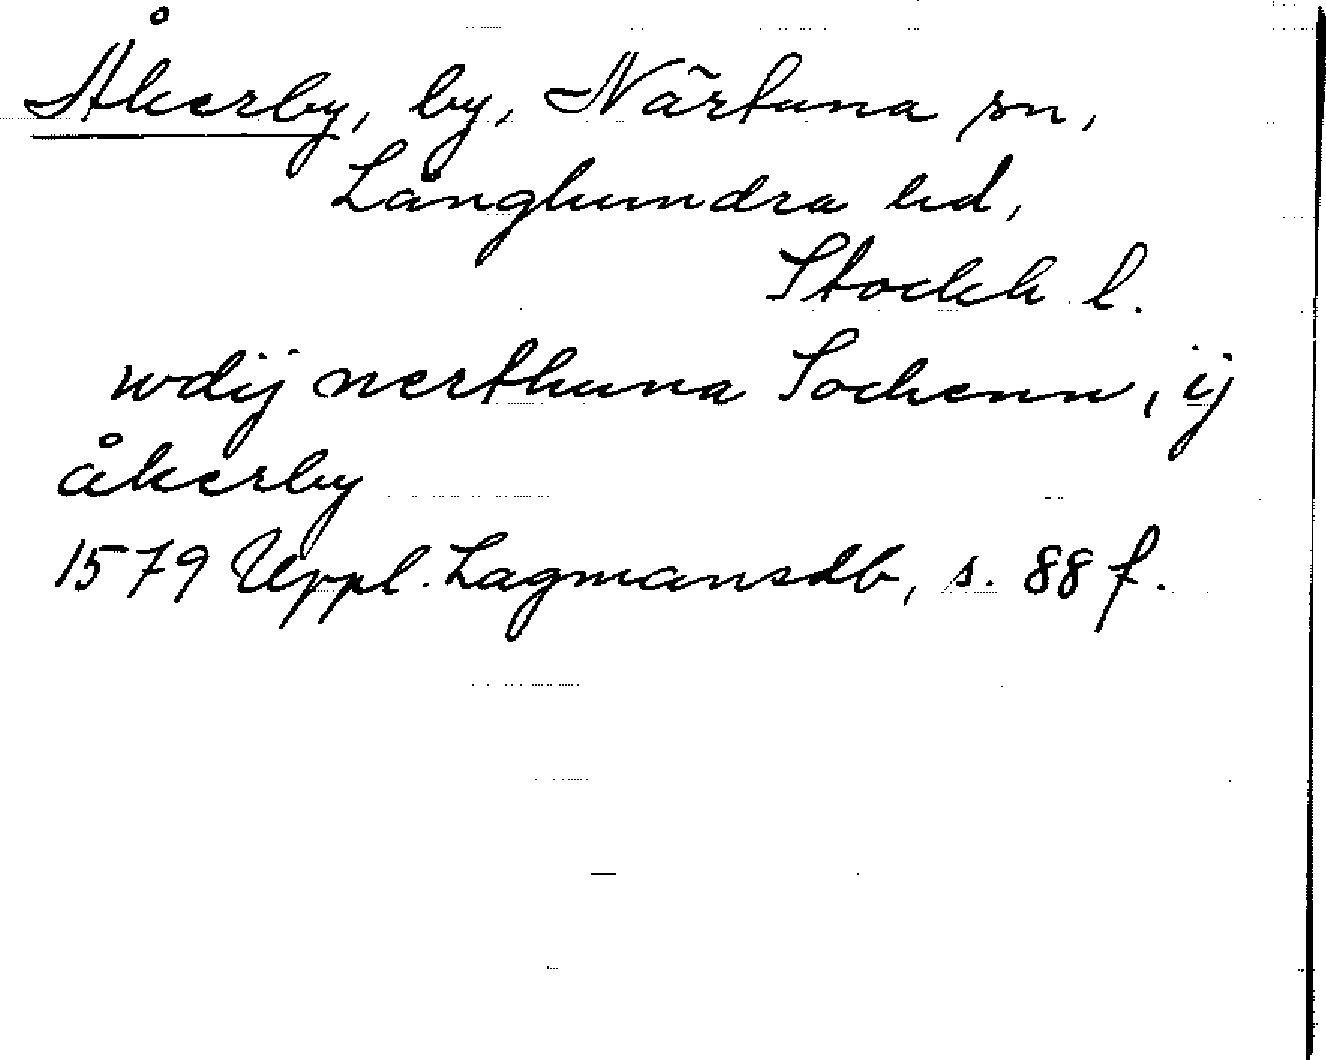 Åkerby, by, Närtuna sn,
Långhundra hd,
Stockh l.
wdij nerthuna Sochenn, ij
åkerby
1579 Uppl. Lagmansdb, s. 88 f.